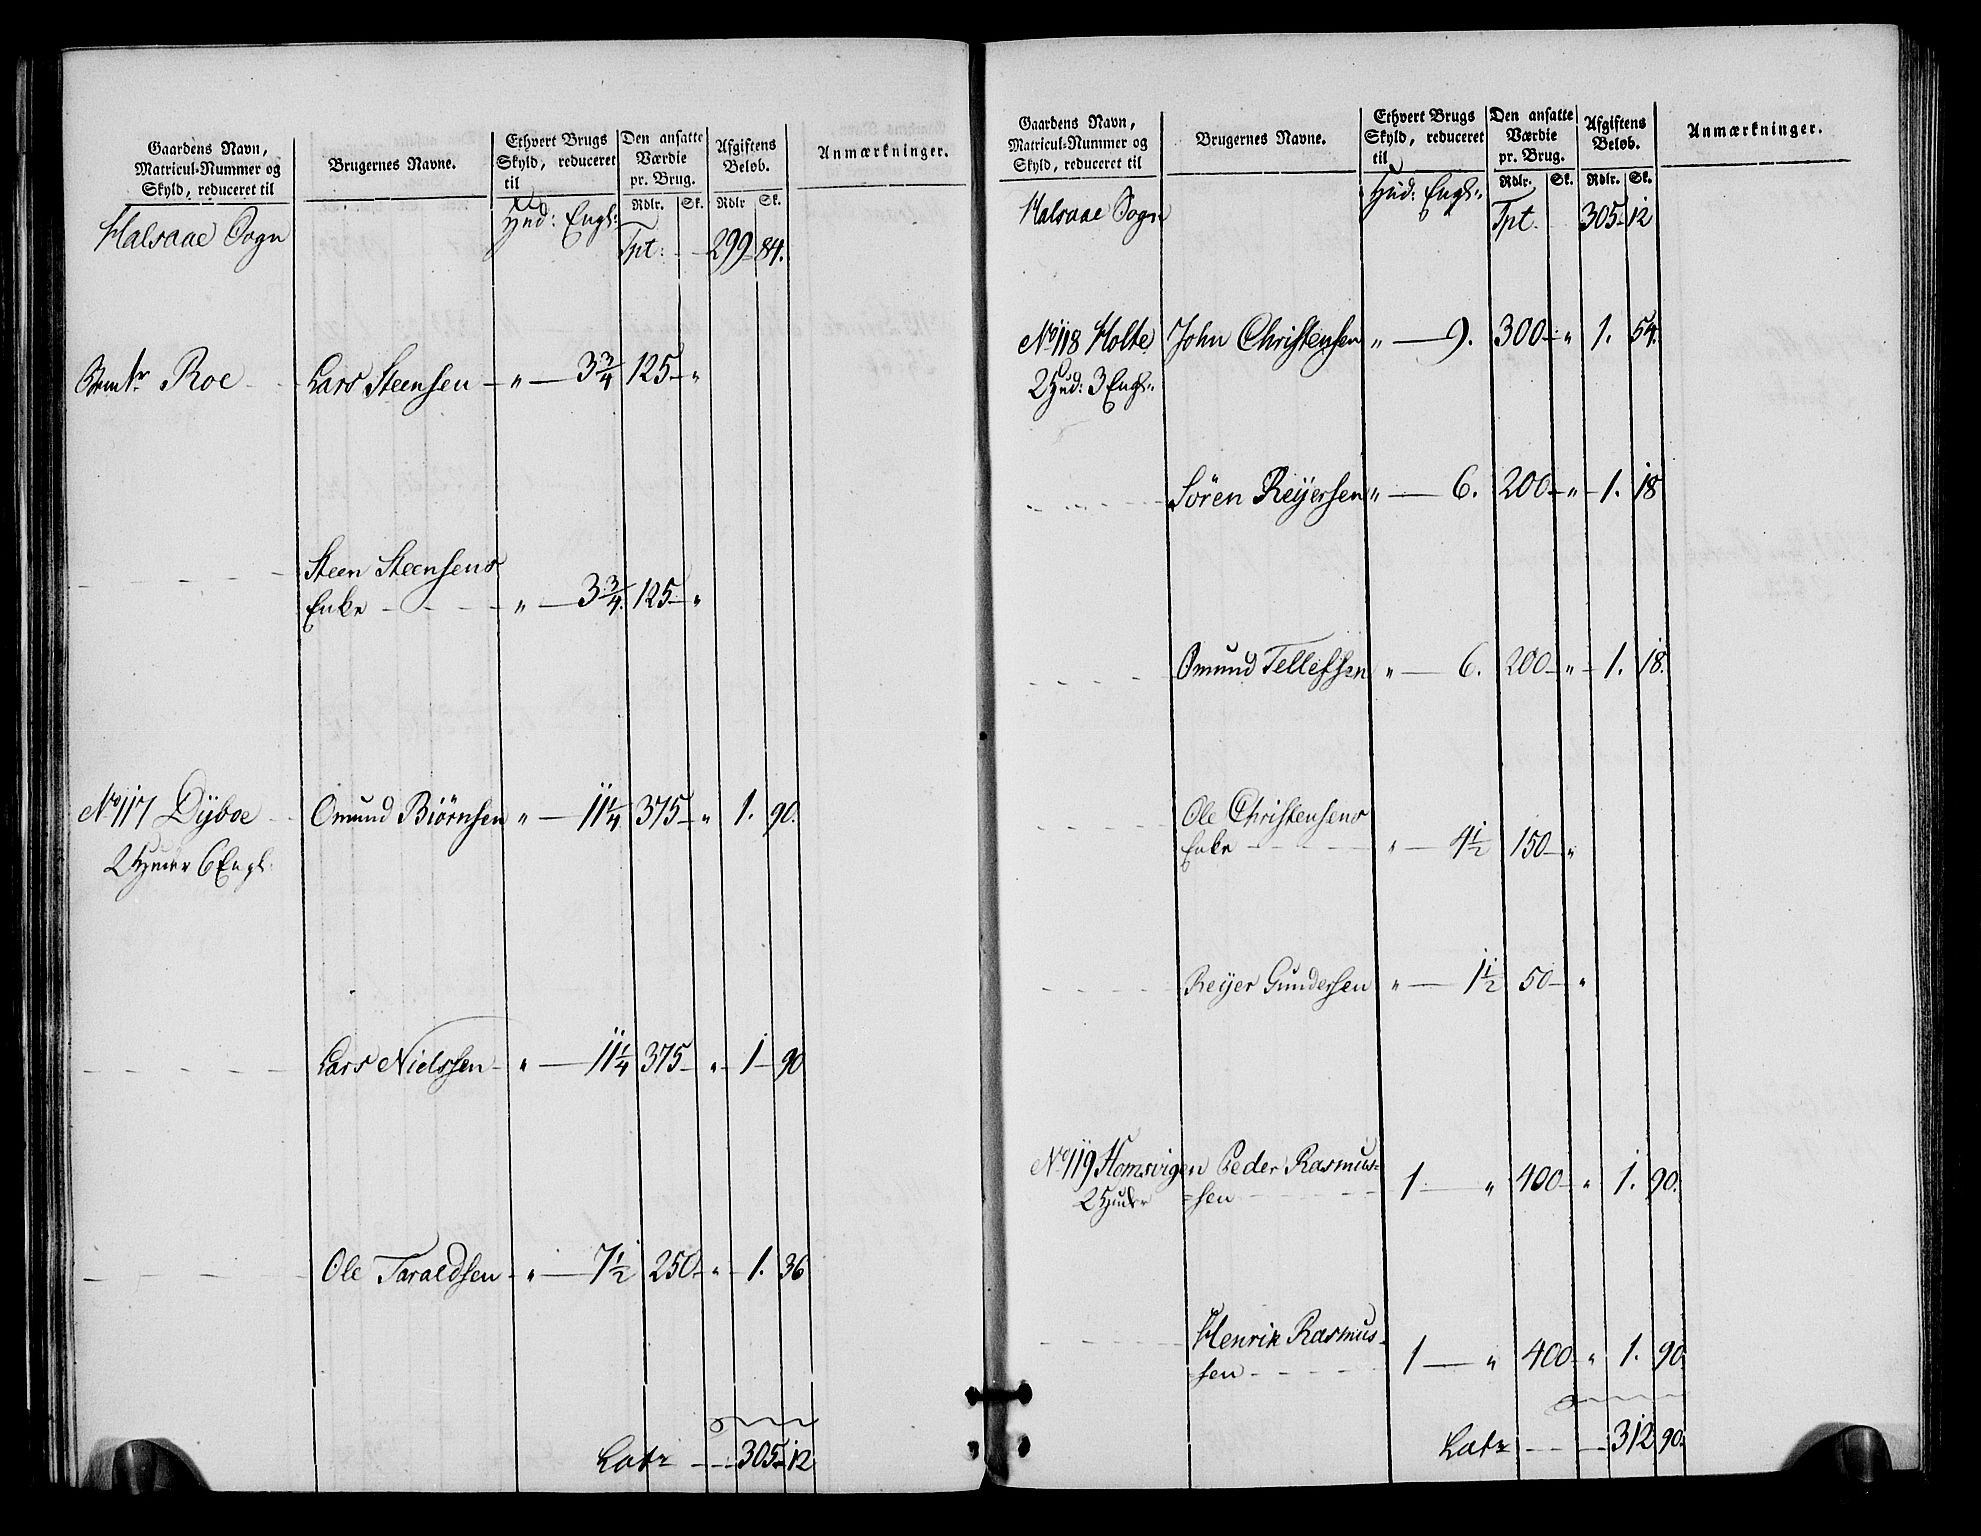 Gaardens Navn, Matricul-Nummer og Skyld, reduceret til | Brugernes Navne. | Ethvert Brugs Skyld, reduceret til | Den ansatte Værdie pr. Brug. | Afgiftens Beløb. | Anmærkninger.
Rdlr. Sk. Rdlr Sk.
Halsaae Sogn Hud: Engl: Tpt: 299 84.
Roe Lars Steensen " 3 3/4 125 "
Steen Steensens
Enke " 3 3/4 125 "
No 117 Dÿboe Omund Biörnsen " 11 1/4 375 " 1. 90.
2 Huder 6 Engl:
Lars Nielssen " 11 1/4 375 " 1 90
Ole Taraldsen " 7 1/2 250 " 1. 36
Latr 305 12
Gaardens Navn, Matricul-Nummer og Skyld, reduceret til | Brugernes Navne. | Ethvert Brugs Skyld, reduceret til | Den ansatte Værdie pr. Brug. | Afgiftens Beløb. | Anmærkninger.
Rdlr. Sk. Rdlr. Sk.
Halsaae Sogn Hud: Engl: Tpt. 305 12
No 118 Holte John Christensen " 9. 300 " 1. 54.
2 Hud: 3 Engl:
Sören Reÿersen " 6. 200 " 1. 18
Omund Tellefsen " 6. 200 " 1. 18.
Ole Christensens
Enke " 4 1/2 150 "
Reÿer Gundersen " 1 1/2 50 "
No 119 Homsvigen Peder Rasmus=
2 Huder =sen 1 " 400 " 1. 90.
Henrik Rasmus=
=sen 1 " 400 " 1. 90.
Latr 312 90.